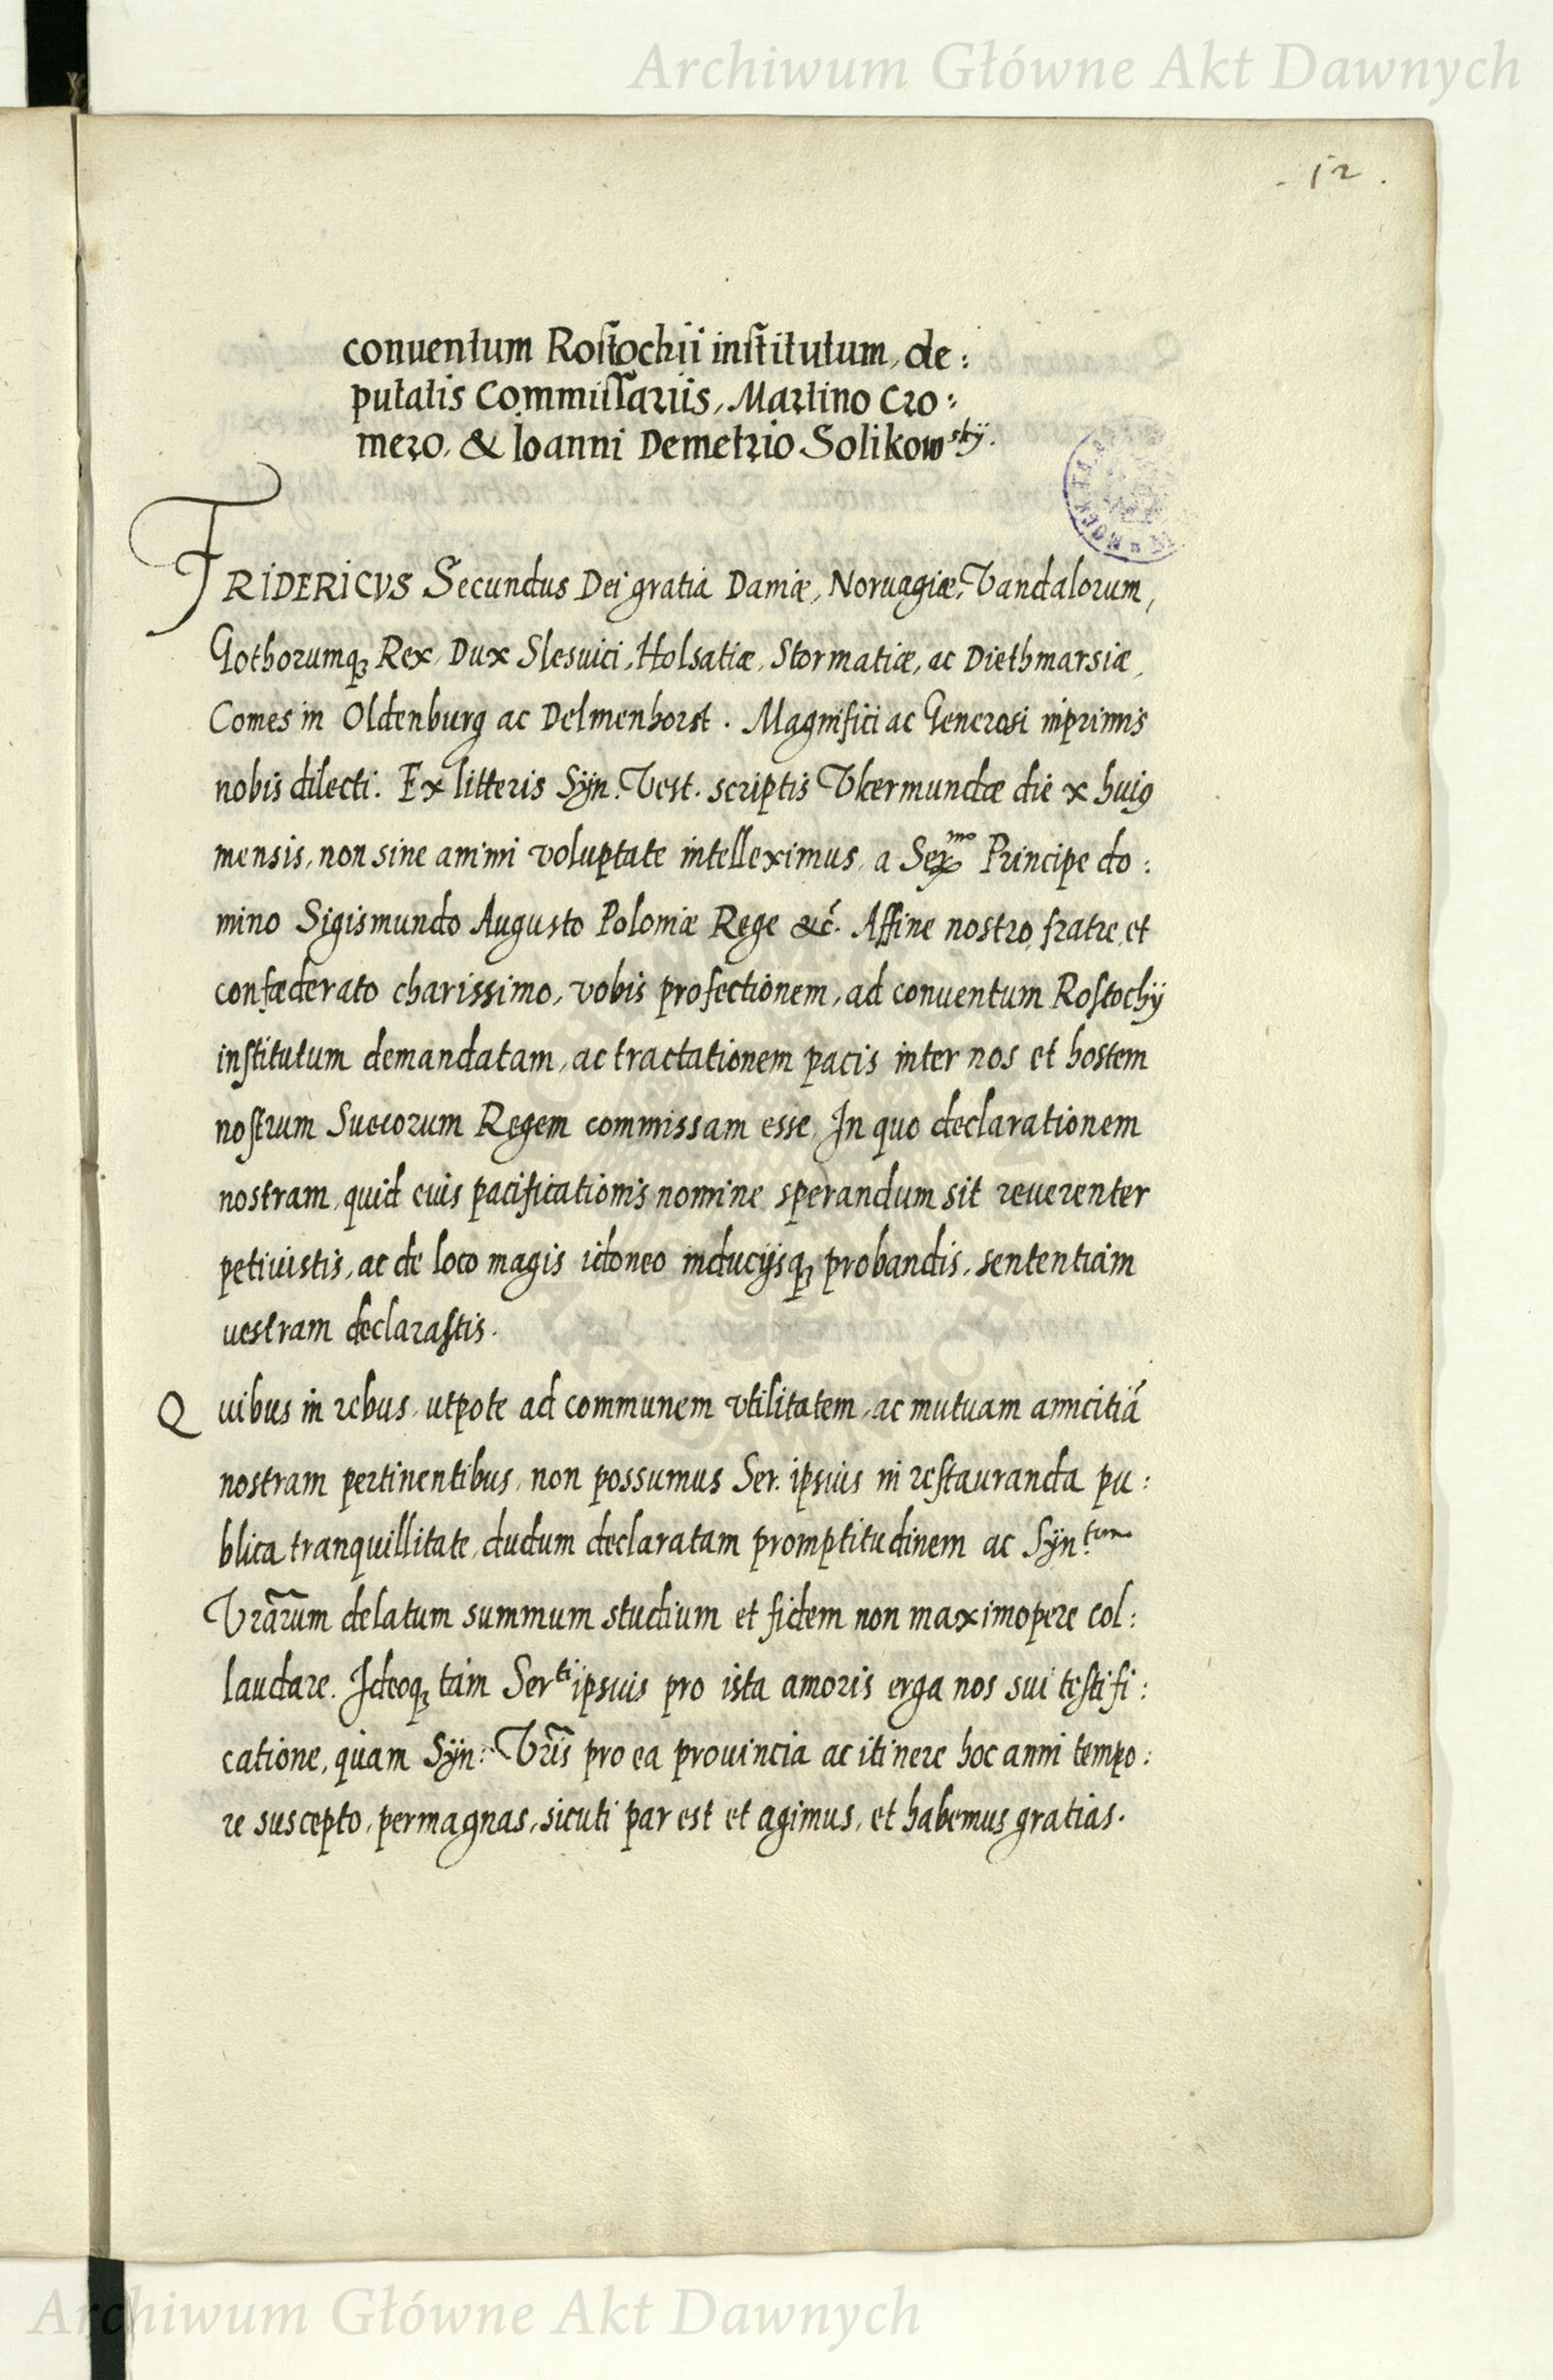 Archiwum Główne Akt Dawnych
. 12 .
conuentum Rostochii institutum, de:
putatis Commissariis, Martino Cro:
mero, & Ioanni Demetrio Solikowskÿ.
FRIDERICVS Secundus Dei gratia Daniæ, Noruagiæ, Vandalorum,
Gothorumq; Rex, Dux Slesuici, Holsatiæ, Stormatiæ, ac Diethmarsiæ,
Comes in Oldenburg ac Delmenhorst. Magnifici ac Generosi inprimis
nobis dilecti. Ex litteris Sÿn. Vest. scriptis Vkermundæ die x huiꝯ
mensis, non sine animi voluptate intelleximus, a Ser.mo Principe do:
mino Sigismundo Augusto Poloniæ Rege &c. Affine nostro, fratre, et
confæderato charissimo, vobis profectionem, ad conuentum Rostochÿ
institutum demandatam, ac tractationem pacis inter nos et hostem
nostrum Suecorum Regem commissam esse, In quo declarationem
nostram, quid euis pacificationis nomine sperandum sit reuerenter
petiuistis, ac de loco magis idoneo inducijsq; probandis, sententiam
uestram declarastis.
Quibus in rebus, utpote ad communem vtilitatem, ac mutuam amicitiã
nostram pertinentibus, non possumus Ser. ipsius in restauranda pu:
blica tranquillitate, dudum declaratam promptitudinem ac Sÿn.tum
Vrãrum delatum summum studium et fidem non maximopere col:
laudare. Ideoq; tam Ser.ti ipsuis pro ista amoris erga nos sui testifi:
catione, quam Sÿn: Vrĩs pro ea prouincia ac itinere hoc anni tempo:
re suscepto, permagnas, sicuti par est et agimus, et habemus gratias.
Archiwum Główne Akt Dawnych